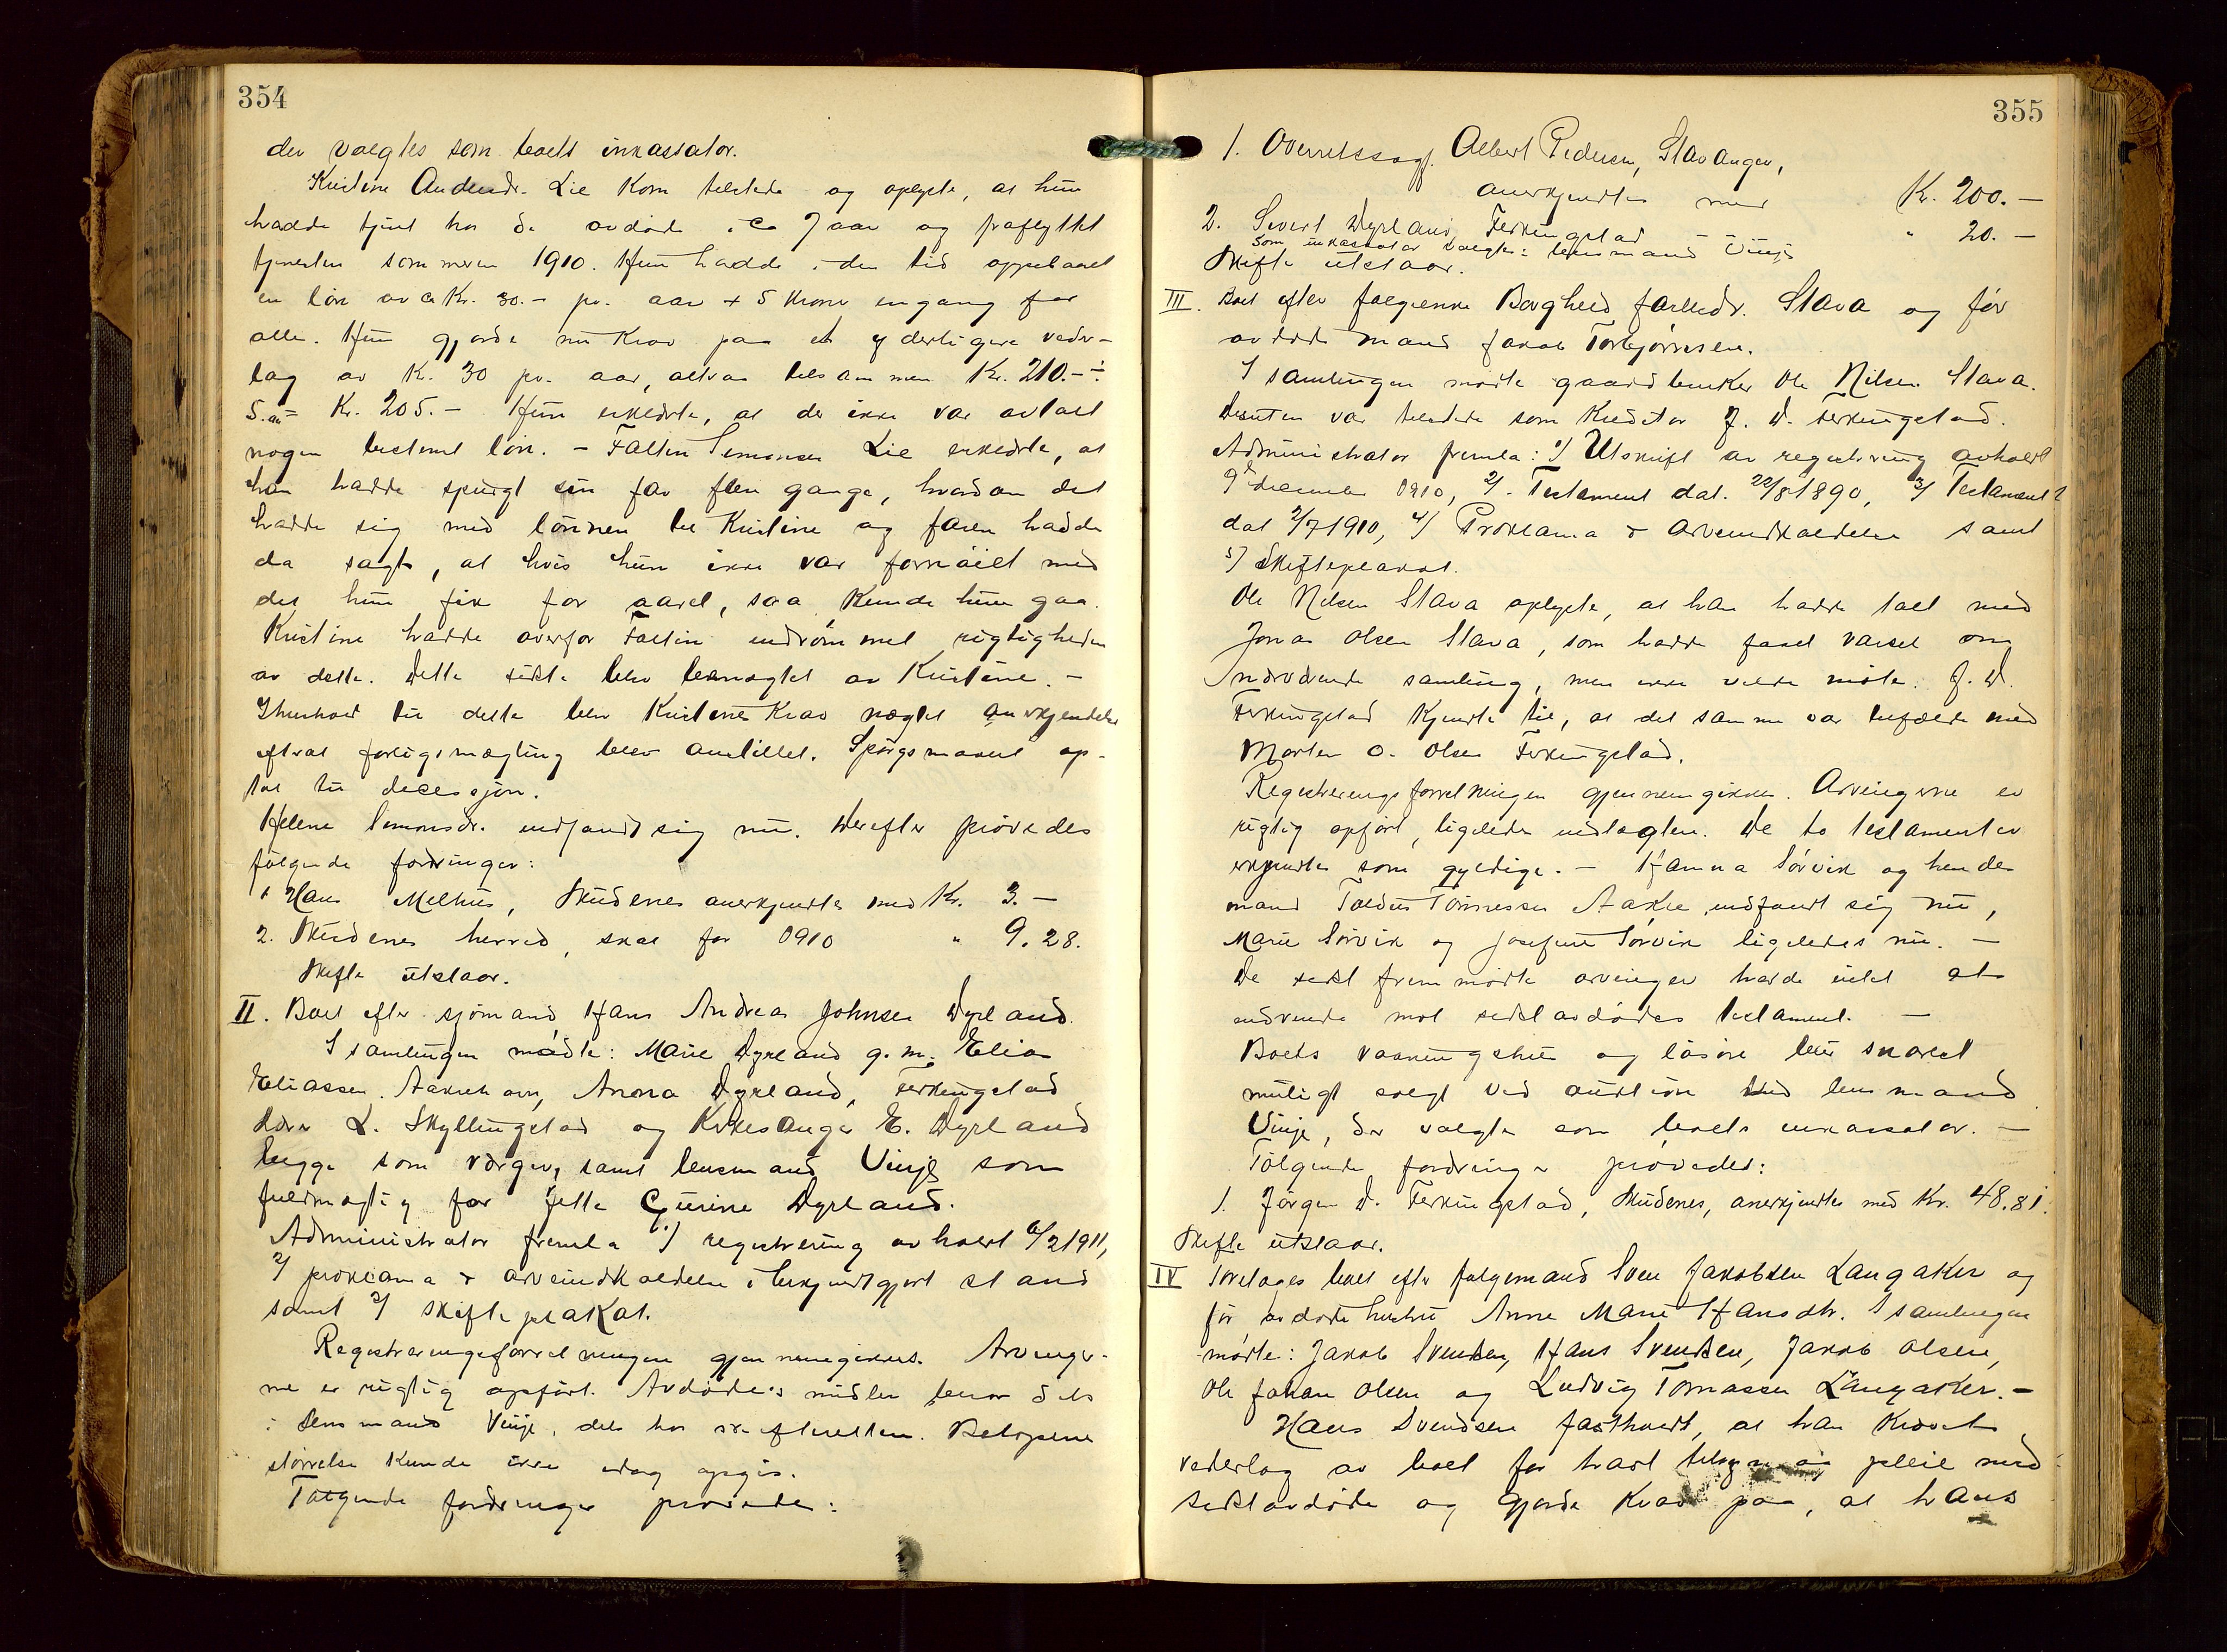 354
der valgtes som boets inkassator.
Kristine Andersdr. Lie kom tilstede og oplyste, at hun
hadde tjent hos de avdøde i ca 7 aar og fraflyttet
tjenesten sommeren 1910. Hun hadde i den tid oppebaaret
en løn av ca Kr. 30.- pr. aar + 5 kroner engang for
alle. Hun gjorde nu krav paa et yderligere veder-
lag av Kr. 30 pr. aar, altsaa tilsammen Kr. 210.- ÷
5.00 = Kr. 205.- Hun erklærte, at der ikke var avtalt
nogen bestemt løn. - Faltin Simonsen Lie erklærte, at
han hadde spurgt sin far flere gange, hvordan det
hadde sig med lønnen til Kristine og faren hadde
da sagt, at hvis hun ikke var fornøiet med
det hun fik for aaret, saa kunde hun gaa.
Kristine hadde overfor Faltin indrømmet rigtigheden
av dette. Dette sidste blev benægtet av Kristine. -
I henhold til dette blev Kristines krav nægtet anerkjendelse
efterat forligsmægling blev anstillet. Spørgsmaalet op-
tat til decisjon.
Helene Simonsdr. indfandt sig nu. Derefter prøvedes
følgende fordringer:
1 Hans Melhus, Skudenes anerkjendtes med Kr. 3.-
2. Skudenes herred, skat for 1910 " 9.28.
Skifte utstaar.
II. Boet efter sjømand Hans Andreas Johnsen Dyrland.
I samlingen mødte: Marie Dyrland g.m. Elias
Eliassen Aakrehavn, Anna Dyrland, Ferkingstad
L. Skyllingstad og kirkesanger E. Dyrland
begge som verger, samt lensmand Vinje som
fuldmægtig for Jette Gurine Dyrland.
Administrator fremla 1/ registrering avholdt 6/2 1911,
2/ proklama & arveindkaldelse i bekjendtgjort stand
samt 3/ skifteplakat.
Registreringsforretningen gjennemgikkes. Arvinger-
ne er rigtig opført. Avdødes midler beror dels
i lensmand Vinje, dels hos skifteretten. Beløpene
størrelse kunde ikke idag opgis.
Følgende fordringer prøvedes:
355
1. Overretssagf. Albert Pedersen, Stavanger,
anerkjendtes med Kr. 200.-
2. Sivert Dyrland, Ferkingstad - " - " 20.-
Som inkassator valgtes: lensmand Vinje
Skifte utstaar.
III. Boet efter følgeenke Borghild Jarlsdr. Stava og før
avdøde mand Jakob Torbjørnsen.
I samlingen møtte gaardbruker Ole Nilsen Stava.
Desuten var tilstede som kreditor J. D. Ferkingstad.
Administrator fremla: 1/ Utskrift av registrering avholdt
9de december 1910, 2/ Testament dat. 22/8 1890, 3/ Testament
dat 2/7 1910, 4/ Proklama & arveindkaldelse samt
5/ Skifteplakat.
Ole Nilsen Stava oplyste, at han hadde talt med
Jonas Olsen Stava, som hadde faaet varsel om
nærværende samling, men ikke vilde møte. J. D.
Ferkingstad kjendte til, at det samme var tilfælde med
Morten O. Olsen Ferkingstad.
Registreringsforretningen gjennemgikkes. Arvingerne er
rigtig opført, ligeledes indtægten. De to testamenter
erkjendtes som gyldige. - Hanna Sørvik og hendes
mand Toldus Tønnessen Aakre indfandt sig nu,
Marie Sørvik og Josefine Sørvik ligeledes nu. -
De sidst fremmødte arvinger hadde intet at
indvende mot sidstavdødes testament. -
Boets vaaningshus og løsøre blir snarest
muligt solgt ved auktion ved lensmand
Vinje, der valgtes som boets inkassator. -
Følgende fordringer prøvedes:
1. Jørgen D. Ferkingstad, Skudenes, anerkjendtes med Kr. 48.81.
Skifte utstaar.
IV Foretages boet efter følgemand Sven Jakobsen Langaker og
før avdøde hustru Anne Marie Hansdtr. I samlingen
møtte: Jakob Svendsen, Hans Svendsen, Jakob Olsen,
Ole Johan Olsen og Ludvig Tomassen Langaker. -
Hans Svendsen fastholdt, at han krævet
vederlag av boet for hard pleie med
sidstavdøde og gjorde krav paa, at hans